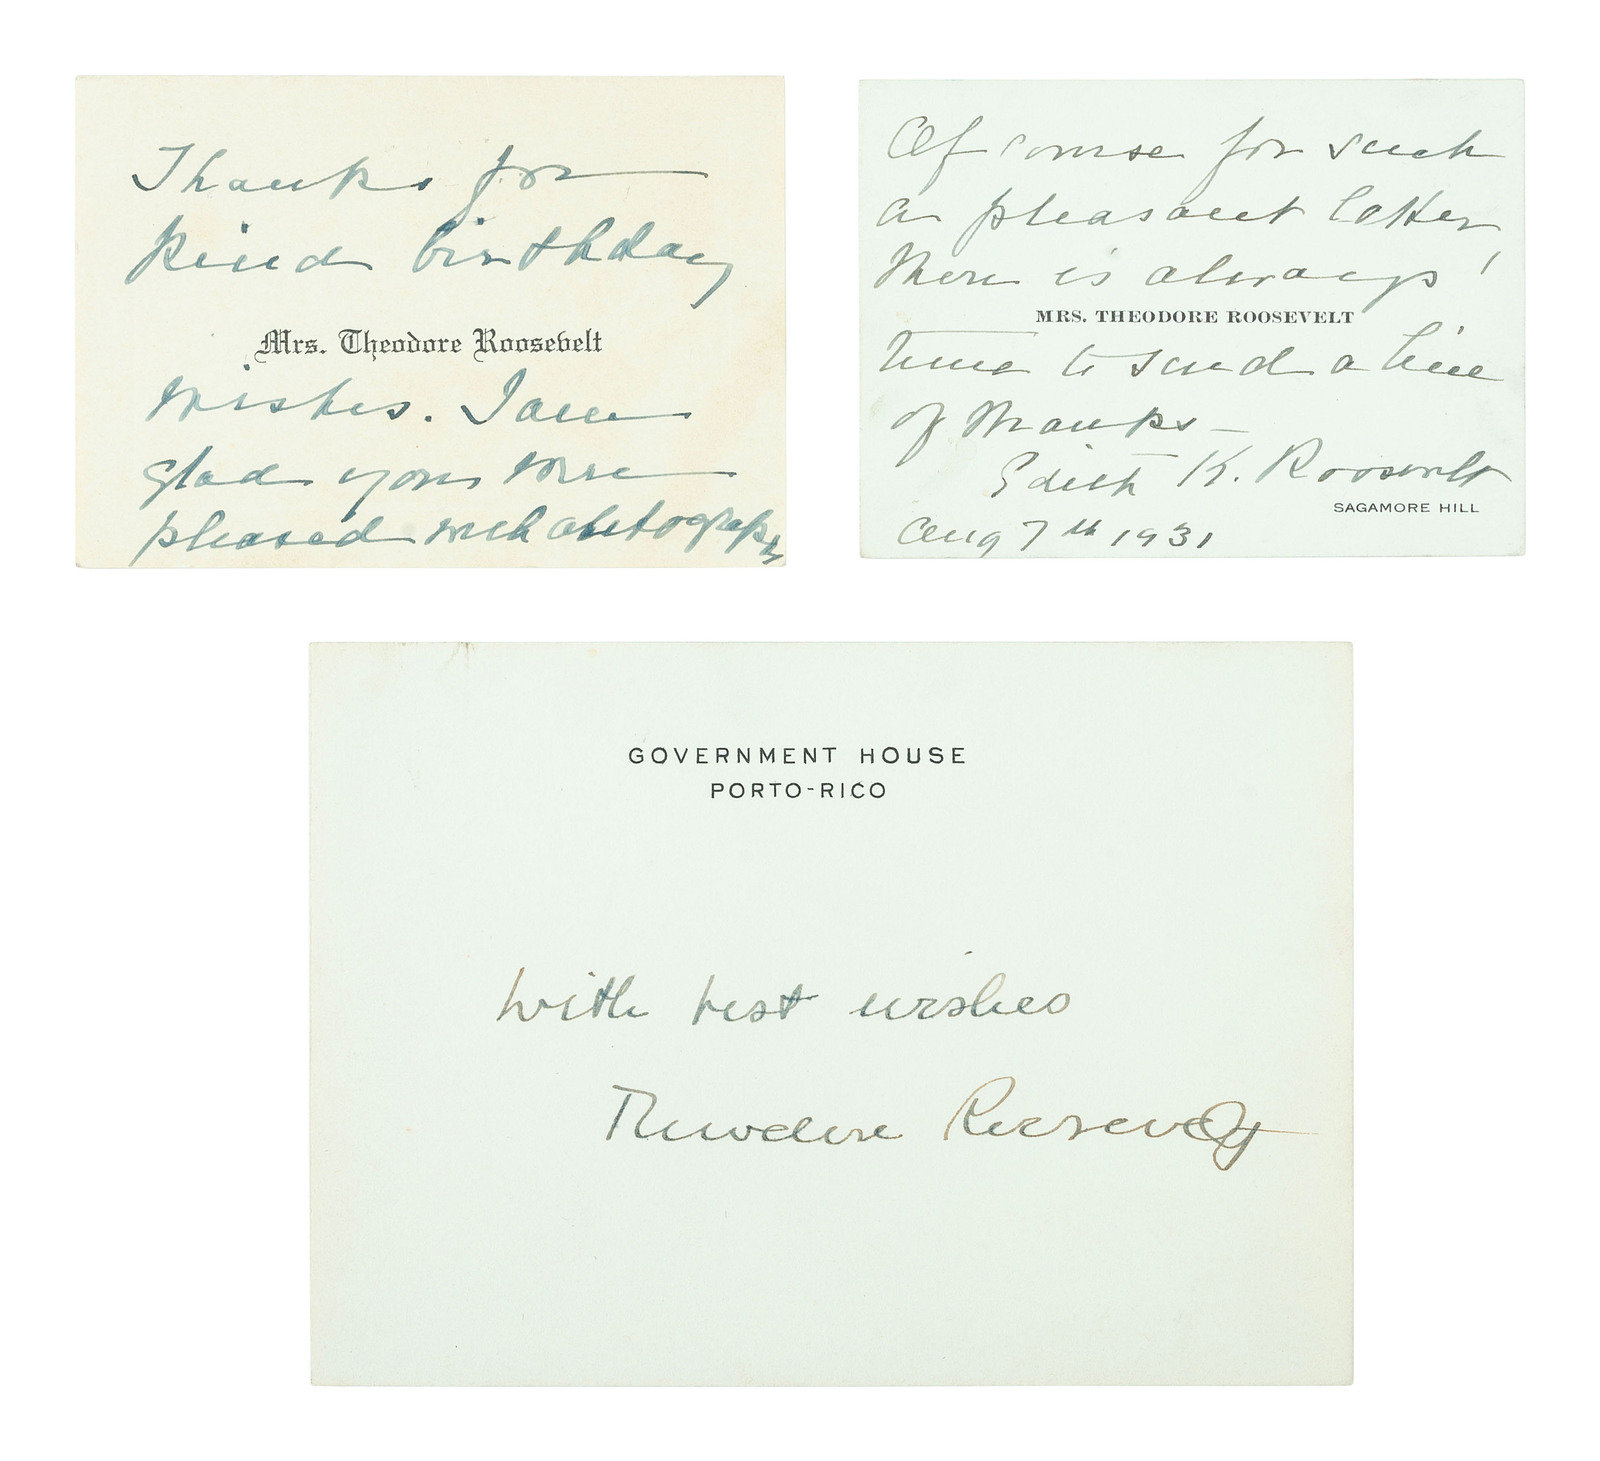 Thanks for
kind birthday
Mrs. Theodore Roosevelt
wishes. I am
glad you were
pleased with autographs
Of course for such
a pleasant letter,
there is always
MRS. THEODORE ROOSEVELT
time to send a line
of thanks -
Edith K. Roosevelt
SAGAMORE HILL
Aug 7th 1931
GOVERNMENT HOUSE
PORTO-RICO
With best wishes
Theodore Roosevelt